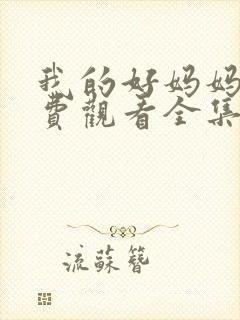 我的好妈妈
费觀看全集
流蘇簪